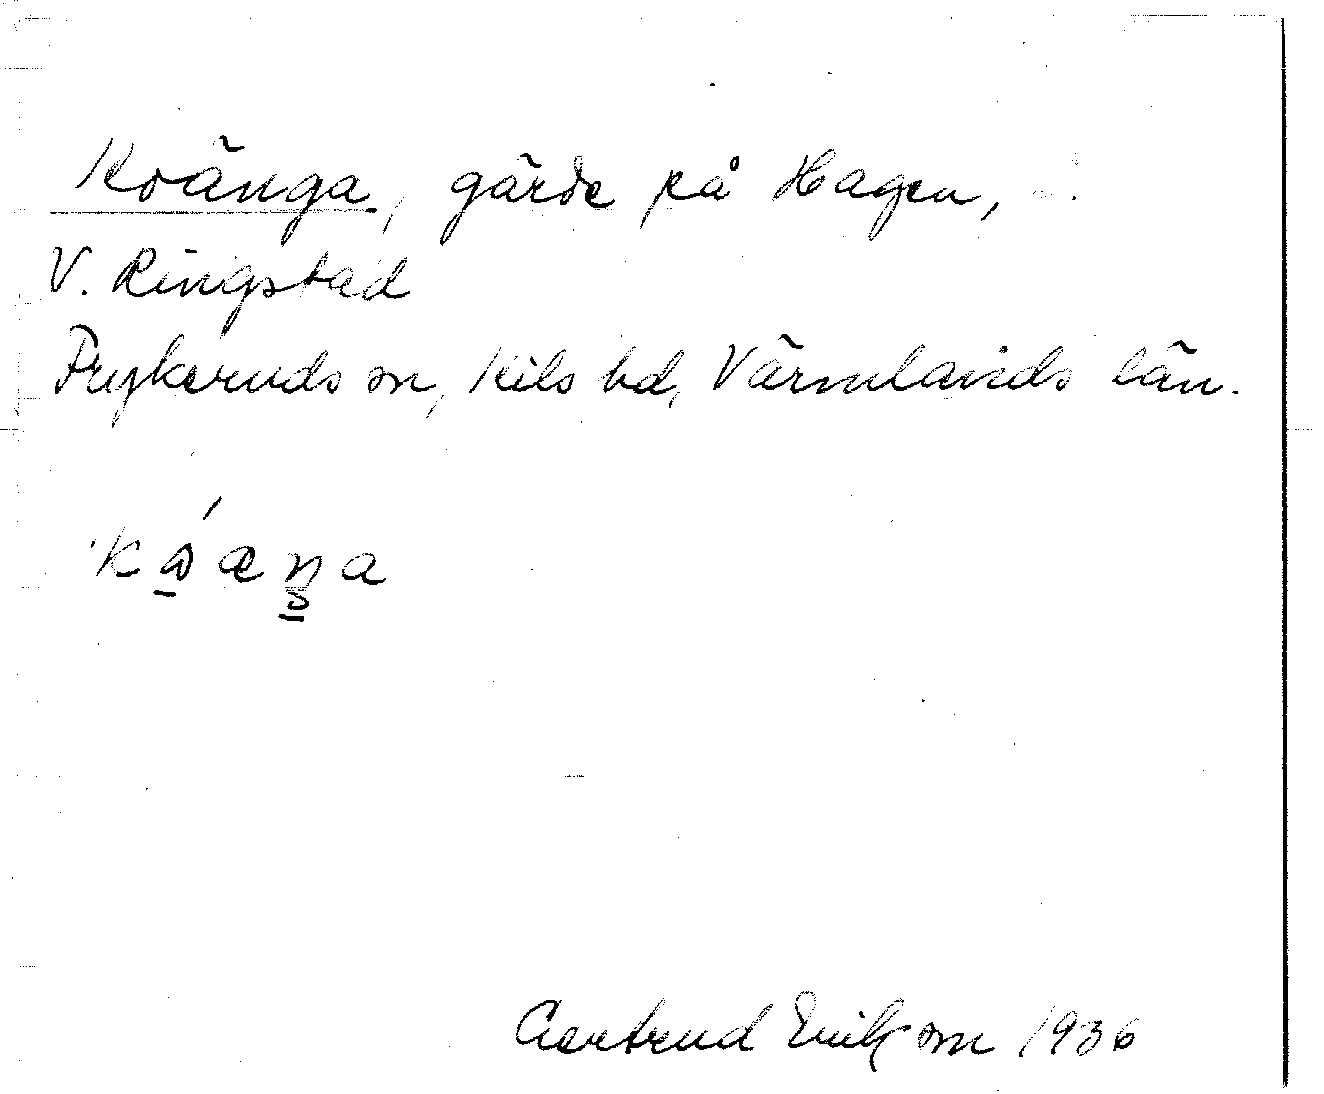 Koänga, gärde på Hagen,
V. Ringstad
Frykeruds sn, Kils hd, Värmlands län.
Gertrud Erikson 1936